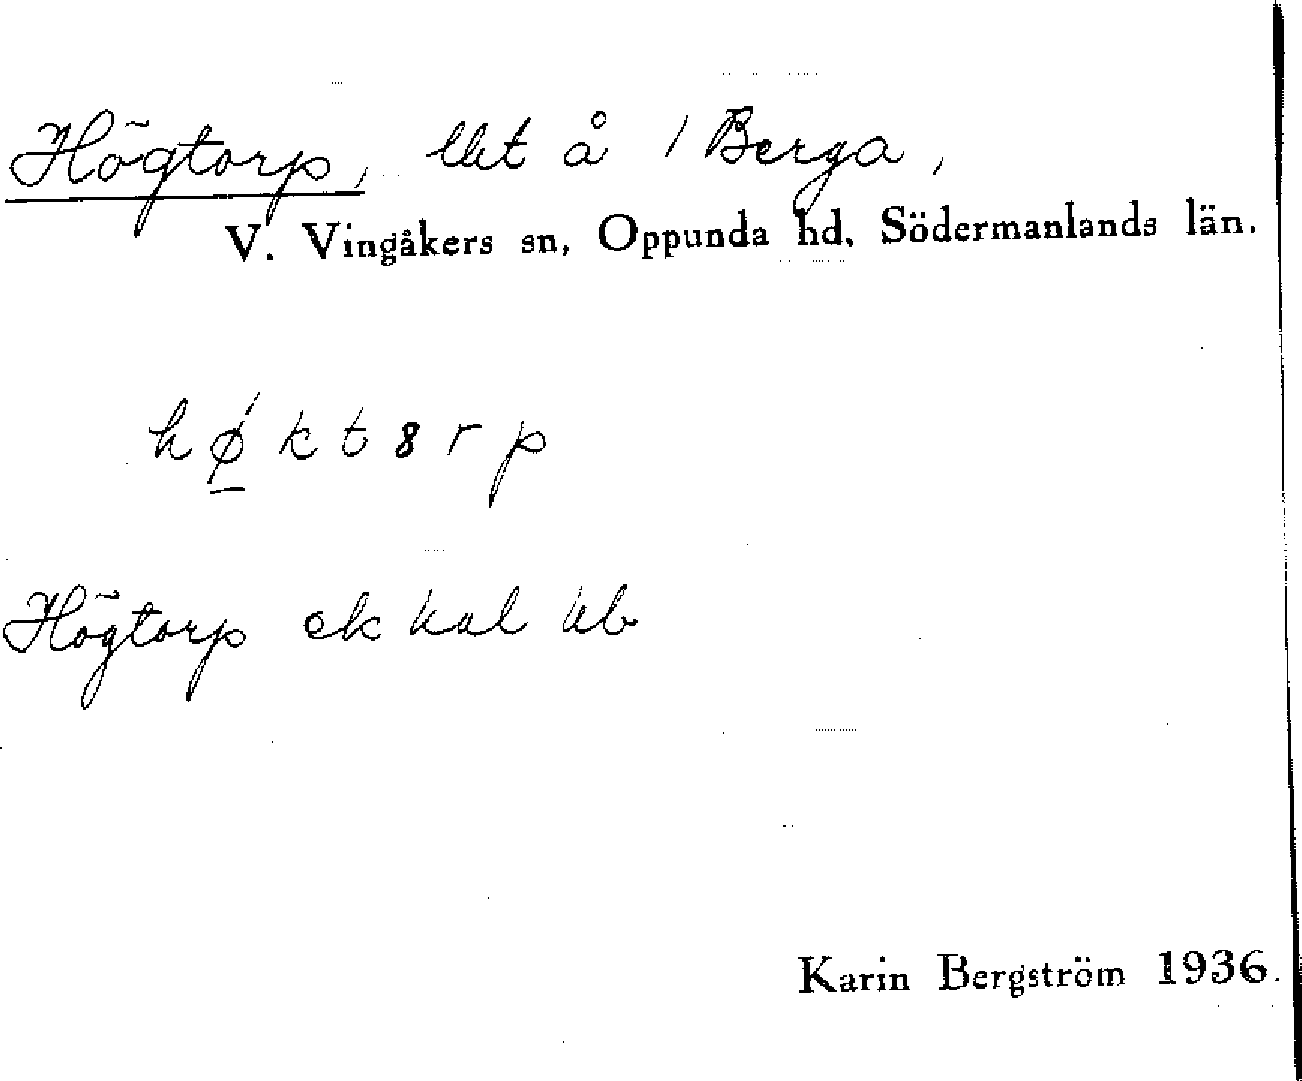 Högtorp, lht å 1 Berga,
V. Vingåkers sn, Oppunda hd, Södermanlands län.
hǿ̱kt8rp
Högtorp ek kal ub
Karin Bergström 1936.